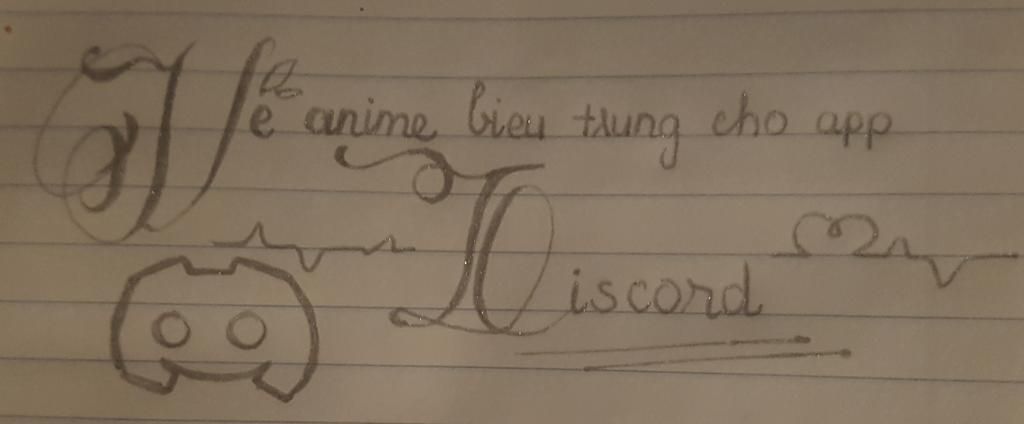 Vẽ anime bieu trung cho app
Discord